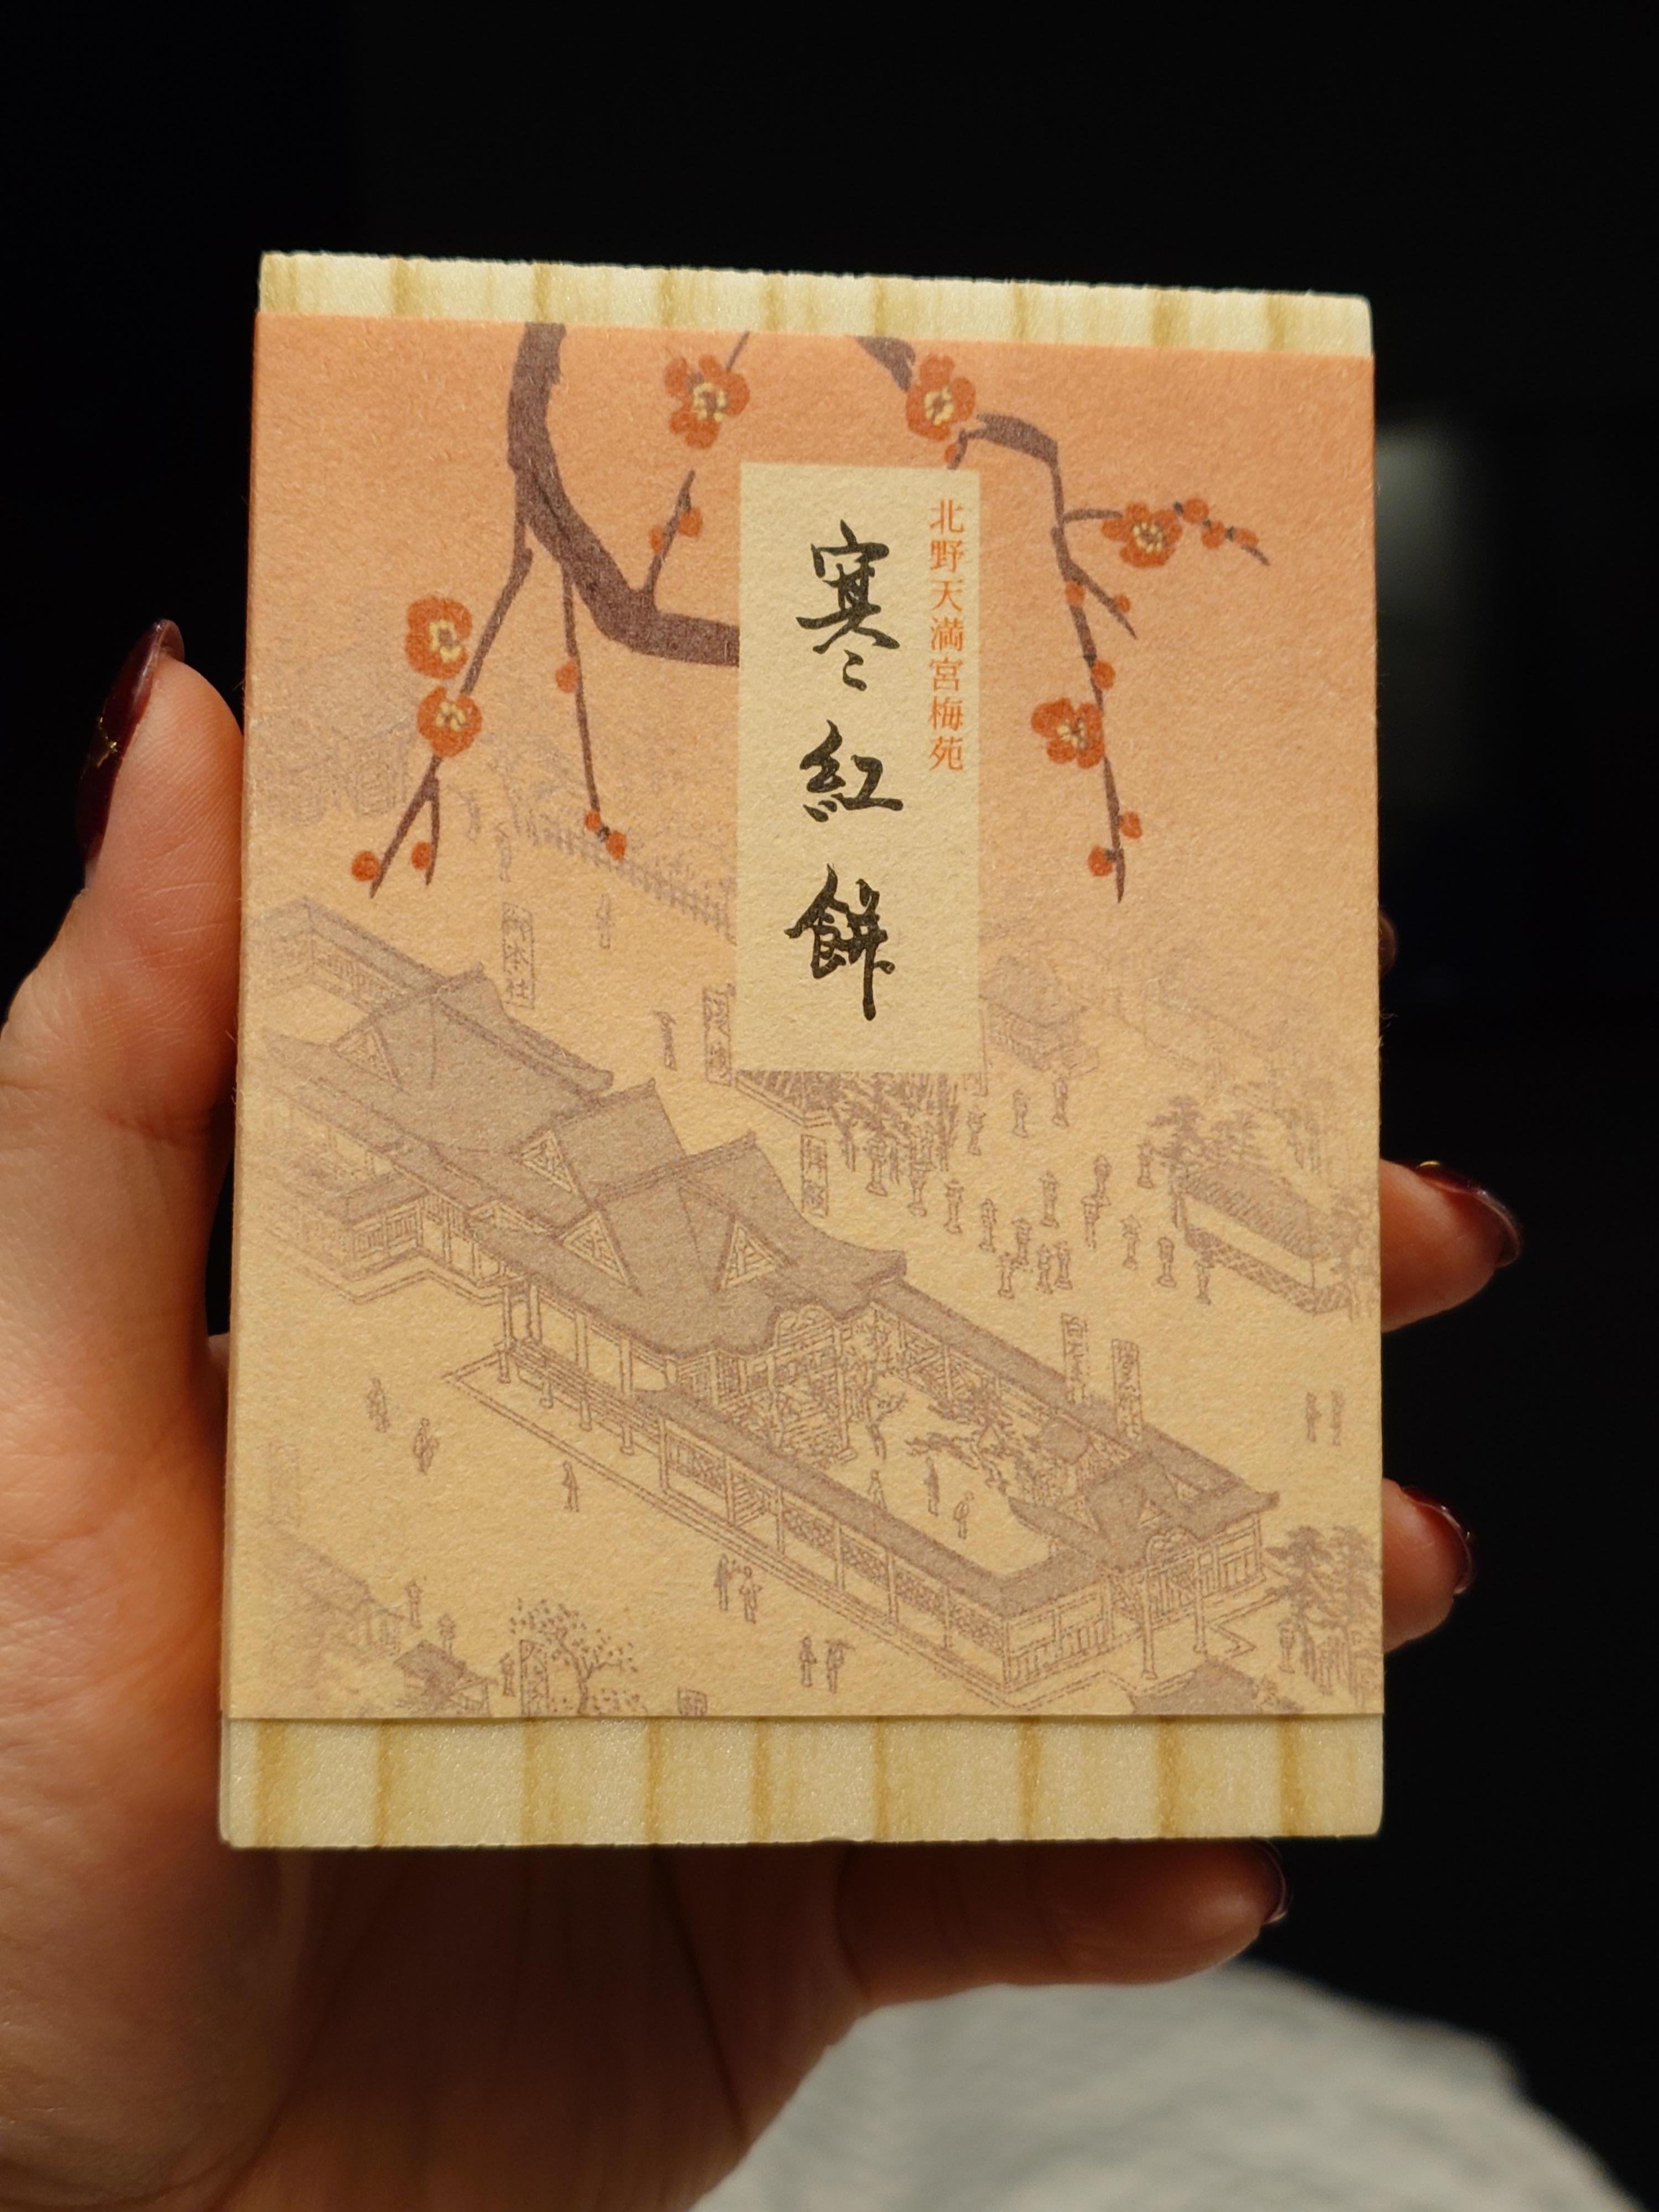 北野天満宮梅苑
寒紅餅